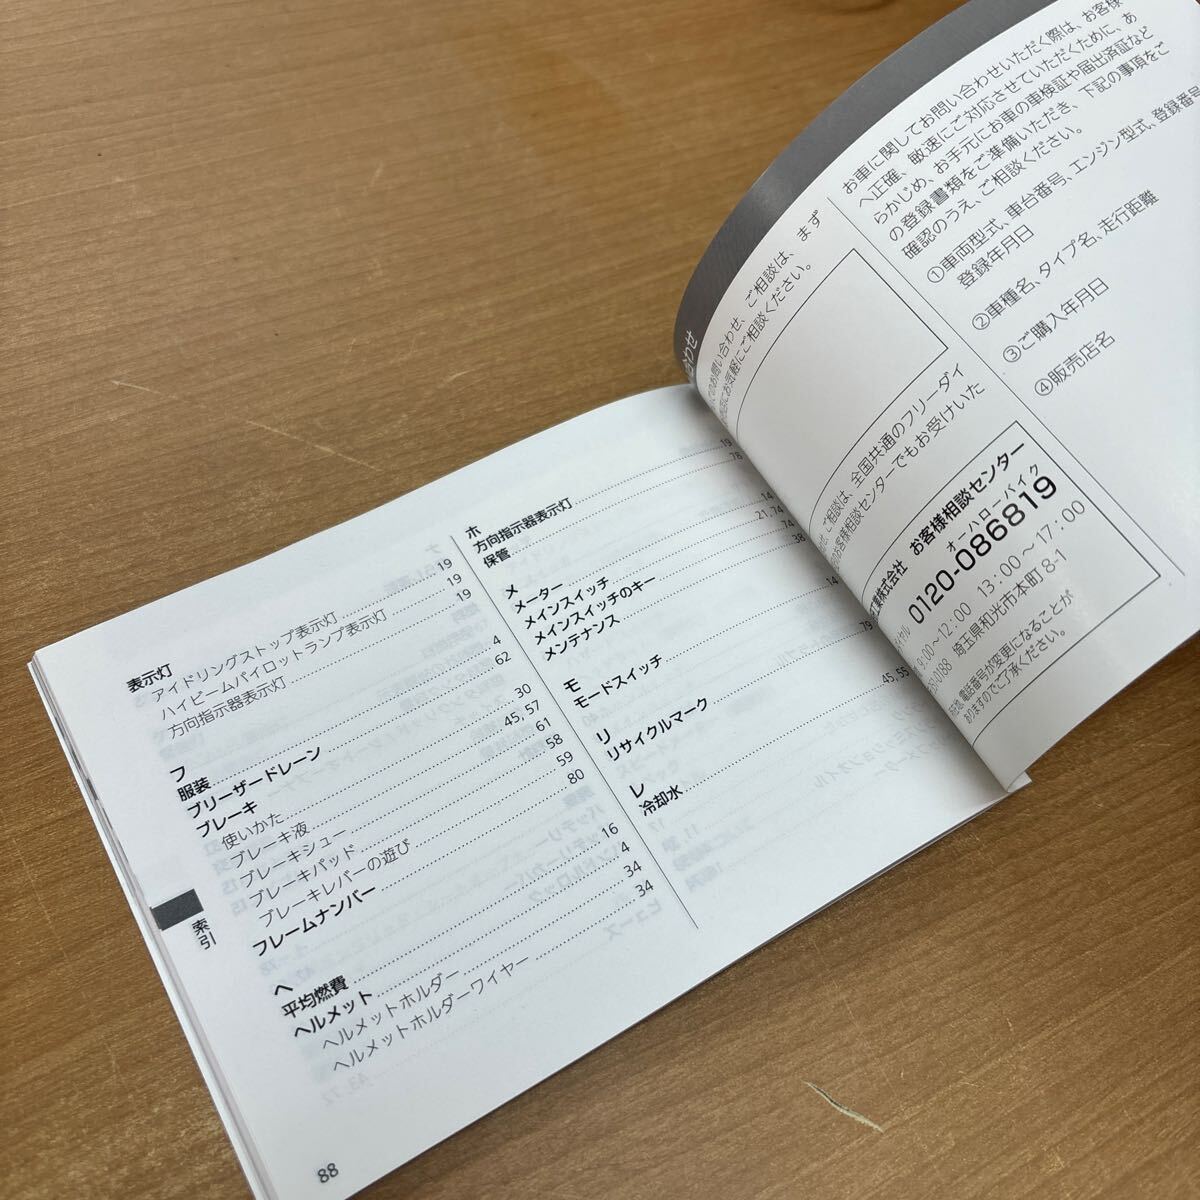 表示灯
アイドリングストップ表示灯 19
ハイビームパイロットランプ表示灯 19
方向指示器表示灯 19
フ
服装 4
ブリーザードレーン 62
ブレーキ
使いかた 30
ブレーキ液 45, 57
ブレーキシュー 61
ブレーキパッド 58
ブレーキレバーの遊び 59
フレームナンバー 80
ヘ
平均燃費 16
ヘルメット 4
ヘルメットホルダー 34
ヘルメットホルダーワイヤー 34
索引
88
ホ
方向指示器表示灯 19
保管 78
メ
メーター 14
メインスイッチ 21, 74
メインスイッチのキー 74
メンテナンス 38
モ
モードスイッチ 14
リ
リサイクルマーク 79
レ
冷却水 45, 55
合わせ
のお問い合わせ、ご相談は、まず
にお気軽にご相談ください。
ご相談は、全国共通のフリーダイ
お客様相談センターでもお受けいた
工業株式会社 お客様相談センター
オーハローバイク
0120-086819
9:00～12:00 13:00～17:00
0188 埼玉県和光市本町 8-1
電話番号が変更になることが
ありますのでご了承ください。
お車に関してお問い合わせいただく際は、お客様
へ正確、敏速にご対応させていただくために、あ
らかじめ、お手元にお車の車検証や届出済証など
の登録書類をご準備いただき、下記の事項をご
確認のうえ、ご相談ください。
①車両型式、車台番号、エンジン型式、登録番号
登録年月日
②車種名、タイプ名、走行距離
③ご購入年月日
④販売店名